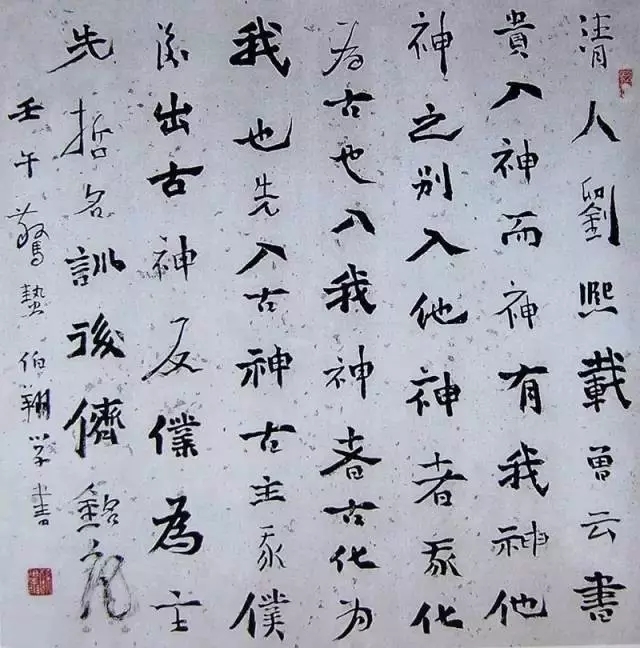 清人劉熙載曾云書
貴入神而神有我神他
神之別入他神者我化
为古也入我神者古化为
我也先入古神古主我僕
後出古神反僕為主
先哲名訓後儕
壬午驚蟄伯翔学書